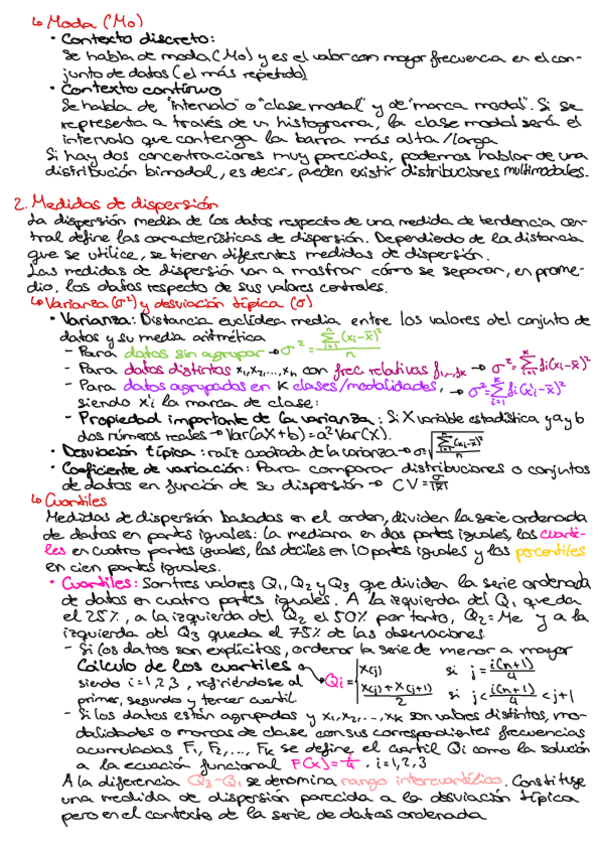 ↳ Moda (Mo)
• Contexto discreto:
Se habla de moda (Mo) y es el valor con mayor frecuencia en el con-
junto de datos (el más repetido)
• Contexto continuo
Se habla de "intervalo" o "clase modal" y de "marca modal". Si se
representa a través de un histograma, la clase modal será el
intervalo que contenga la barra más alta/larga
Si hay dos concentraciones muy parecidas, podemos hablar de una
distribución bimodal, es decir, pueden existir distribuciones multimodales.
2. Medidas de dispersión
La dispersión media de los datos respecto de una medida de tendencia cen-
tral define las características de dispersión. Dependiendo de la distancia
que se utilice, se tienen diferentes medidas de dispersión.
Las medidas de dispersión van a mostrar cómo se separan, en prome-
dio, los datos respecto de sus valores centrales.
↳ Varianza (σ²) y desviación típica (σ)
• Varianza: Distancia euclídea media entre los valores del conjuto de
datos y su media aritmética
– Para datos sin agrupar → σ² = Σⁿᵢ₌₁ (xᵢ – x̄)² / n
– Para datos distintos x₁, x₂, ..., xₖ con frec relativas f₁, ..., fₖ → σ² = Σᵏᵢ₌₁ fᵢ (xᵢ – x̄)²
– Para datos agrupados en K clases/modalidades, → σ² = Σᵏᵢ₌₁ fᵢ (x'ᵢ – x̄)²
siendo x'ᵢ la marca de clase:
– Propiedad importante de la varianza: Si X variable estadística y a y b
dos números reales → Var(aX + b) = a² Var(X).
• Desviación típica: raíz cuadrada de la varianza → σ = √(Σⁿᵢ₌₁ (xᵢ – x̄)² / n)
• Coeficiente de variación: Para comparar distribuciones o conjuntos
de datos en función de su dispersión → CV = σ / |x̄|
↳ Cuartiles
Medidas de dispersión basadas en el orden, dividen la serie ordenada
de datos en partes iguales: la mediana en dos partes iguales, los cuarti-
les en cuatro partes iguales, los deciles en 10 partes iguales y los percentiles
en cien partes iguales.
• Cuartiles: Son tres valores Q₁, Q₂ y Q₃ que dividen la serie ordenada
de datos en cuatro partes iguales. A la izquierda del Q₁ queda
el 25%, a la izquierda del Q₂ el 50% por tanto, Q₂ = Me y a la
izquierda del Q₃ queda el 75% de las observaciones
– Si los datos son explícitos, ordenar la serie de menor a mayor
Cálculo de los cuartiles
siendo i = 1, 2, 3, refiriéndose al
primer, segundo y tercer cuartil.
Qᵢ =
x(j) si j = i(n+1)/4
x(j) + x(j+1) / 2 si j < i(n+1)/4 < j+1
– Si los datos están agrupados y x₁, x₂, ..., xₖ son valores distintos, mo-
dalidades o marcas de clase con sus correspondientes frecuencias
acumuladas F₁, F₂, ..., Fₖ se define el cuartil Qᵢ como la solución
a la ecuación funcional F(x) = i/4, i = 1, 2, 3
A la diferencia Q₃ – Q₁ se denomina rango intercuartílico. Constituye
una medida de dispersión parecida a la desviación típica
pero en el contexto de la serie de datos ordenada